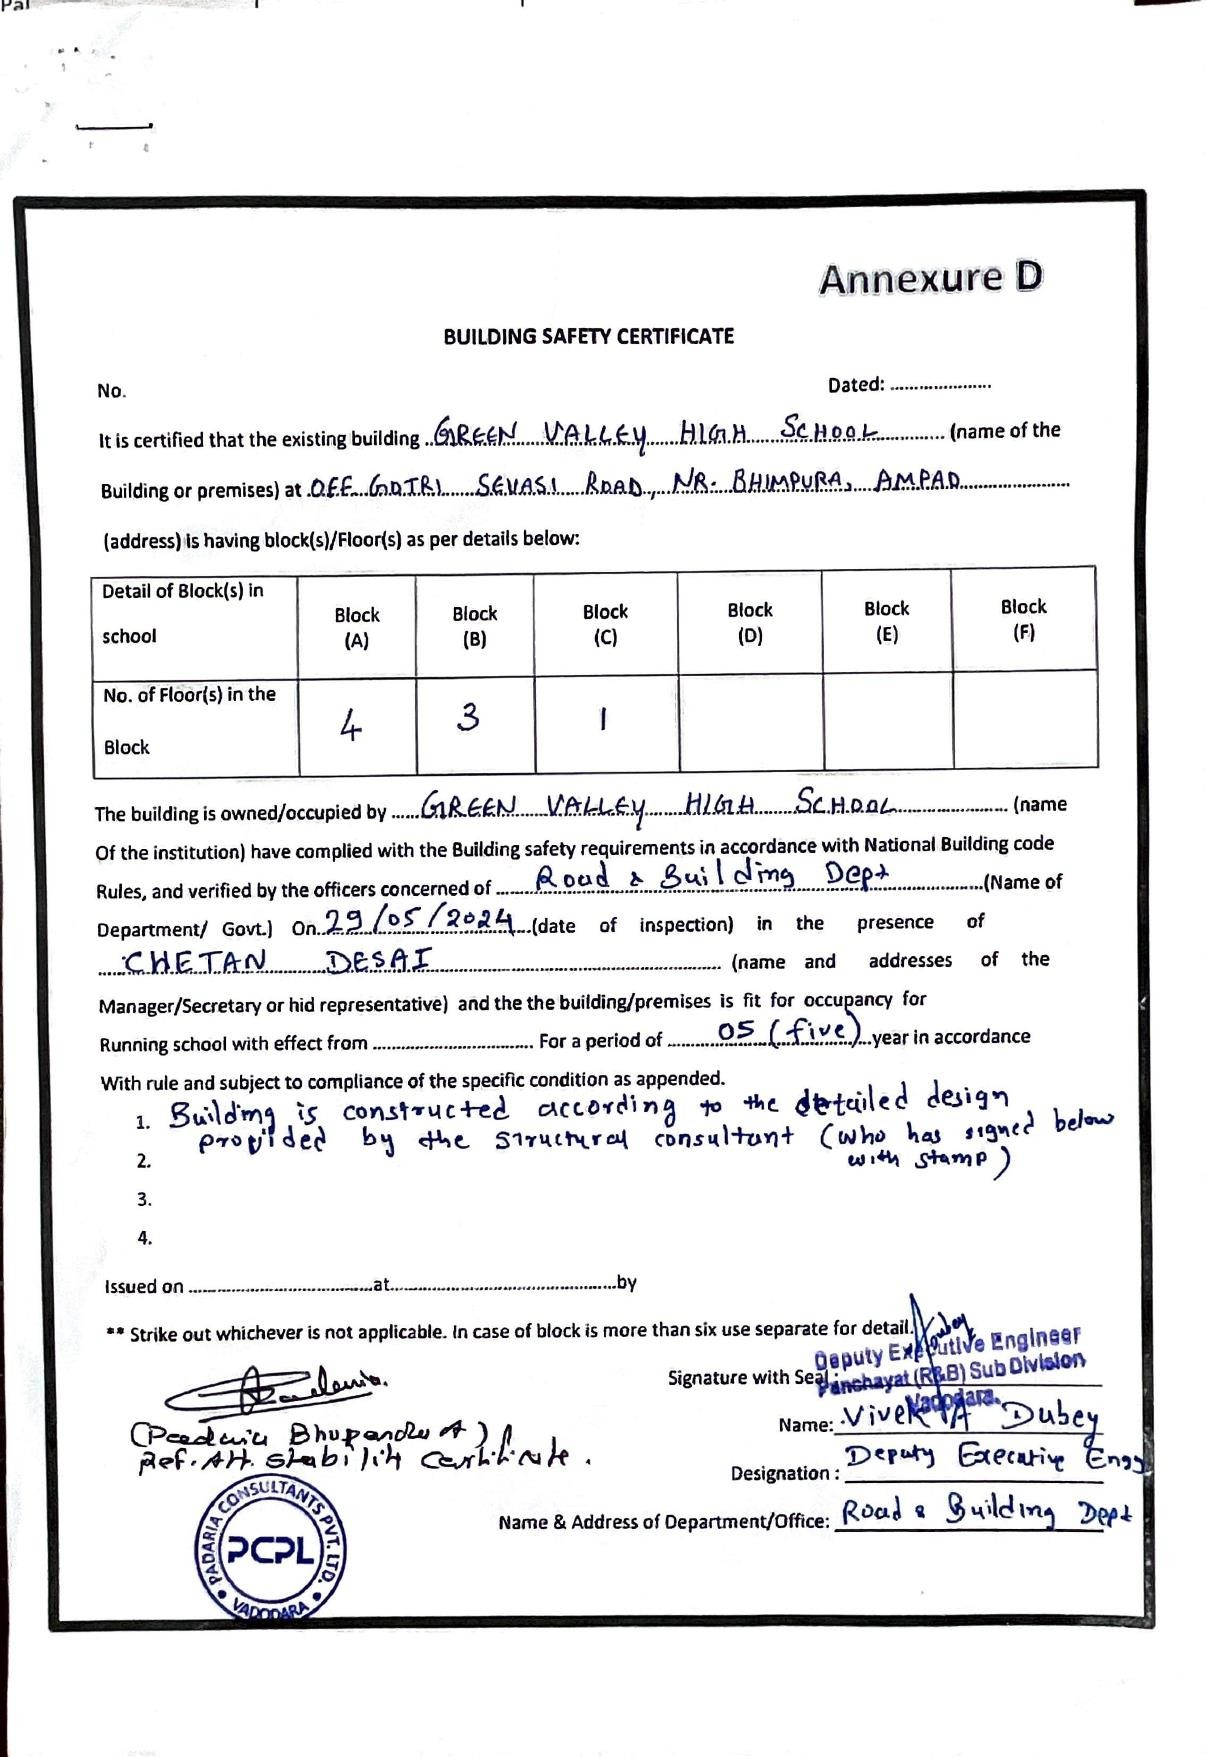 Pal
Annexure D
BUILDING SAFETY CERTIFICATE
No. Dated: .....................
It is certified that the existing building ..GREEN VALLEY HIGH SCHOOL............. (name of the
Building or premises) at .OFF GOTRI SEVASI ROAD, NR. BHIMPURA, AMPAD.......................
(address) is having block(s)/Floor(s) as per details below:
Detail of Block(s) in school Block (A) Block (B) Block (C) Block (D) Block (E) Block (F)
No. of Floor(s) in the Block 4 3 1
The building is owned/occupied by ......GREEN VALLEY HIGH SCHOOL........................ (name
Of the institution) have complied with the Building safety requirements in accordance with National Building code
Rules, and verified by the officers concerned of .........Road & Building Dept....................(Name of
Department/ Govt.) On..29/05/2024...(date of inspection) in the presence of
.....CHETAN DESAI.......................................................... (name and addresses of the
Manager/Secretary or hid representative) and the the building/premises is fit for occupancy for
Running school with effect from .................................. For a period of ...........05 (five)...year in accordance
With rule and subject to compliance of the specific condition as appended.
1. Building is constructed according to the detailed design
provided by the structural consultant (who has signed below
with stamp)
2.
3.
4.
Issued on .......................................at.................................................by
** Strike out whichever is not applicable. In case of block is more than six use separate for detail.
Deputy Executive Engineer
Signature with Seal:
Panchayat (R&B) Sub Division
Vadodara.
Name: Vivek A Dubey
Ref. Att. stability certificate.
Designation : Deputy Executive Engg
Name & Address of Department/Office: Road & Building Dept
PADARIA CONSULTANTS PVT. LTD.
PCPL
VADODARA